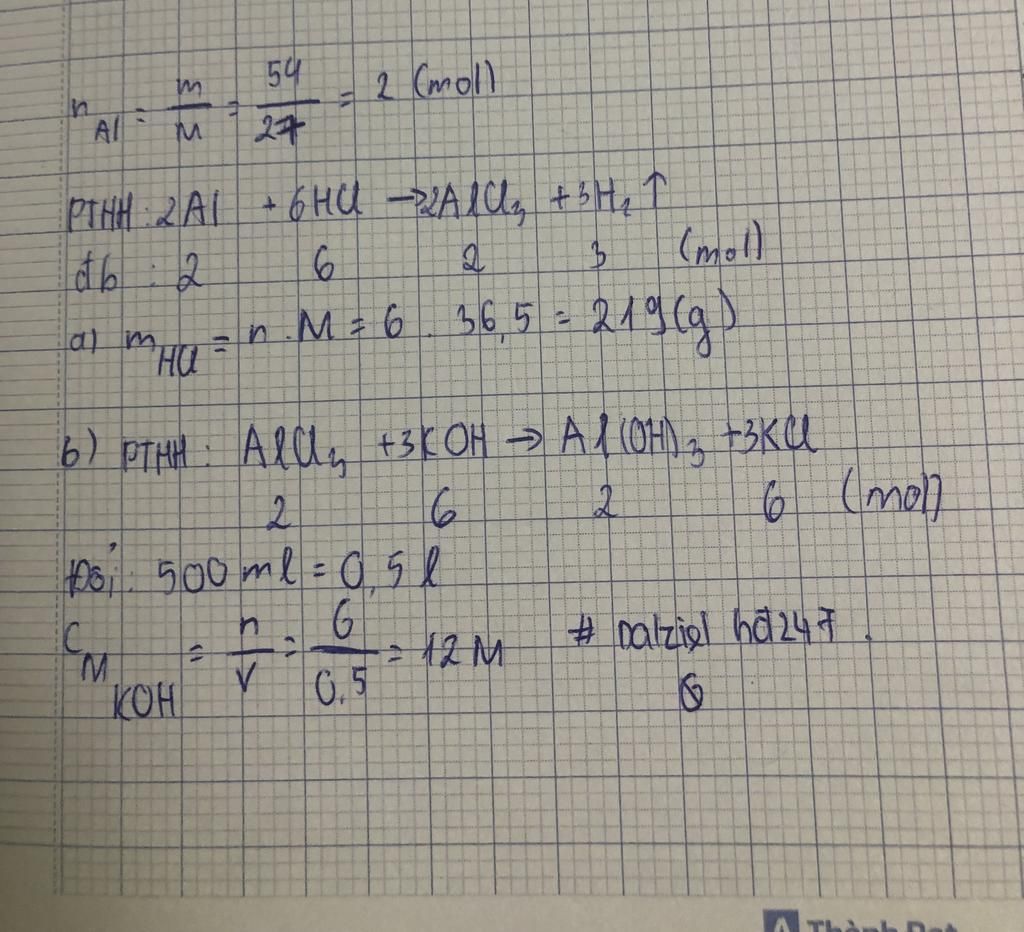 n Al = m/M = 54/27 = 2 (mol)
PTHH: 2Al + 6HCl → 2AlCl3 + 3H2 ↑
đb : 2 6 2 3 (mol)
a) m HCl = n . M = 6 . 36,5 = 219 (g)
b) PTHH: AlCl3 + 3KOH → Al(OH)3 + 3KCl
2 6 2 6 (mol)
Đổi: 500 ml = 0,5 l
C M KOH = n/V = 6/0,5 = 12 M # Dalziel hđ247
A Thành Đạt